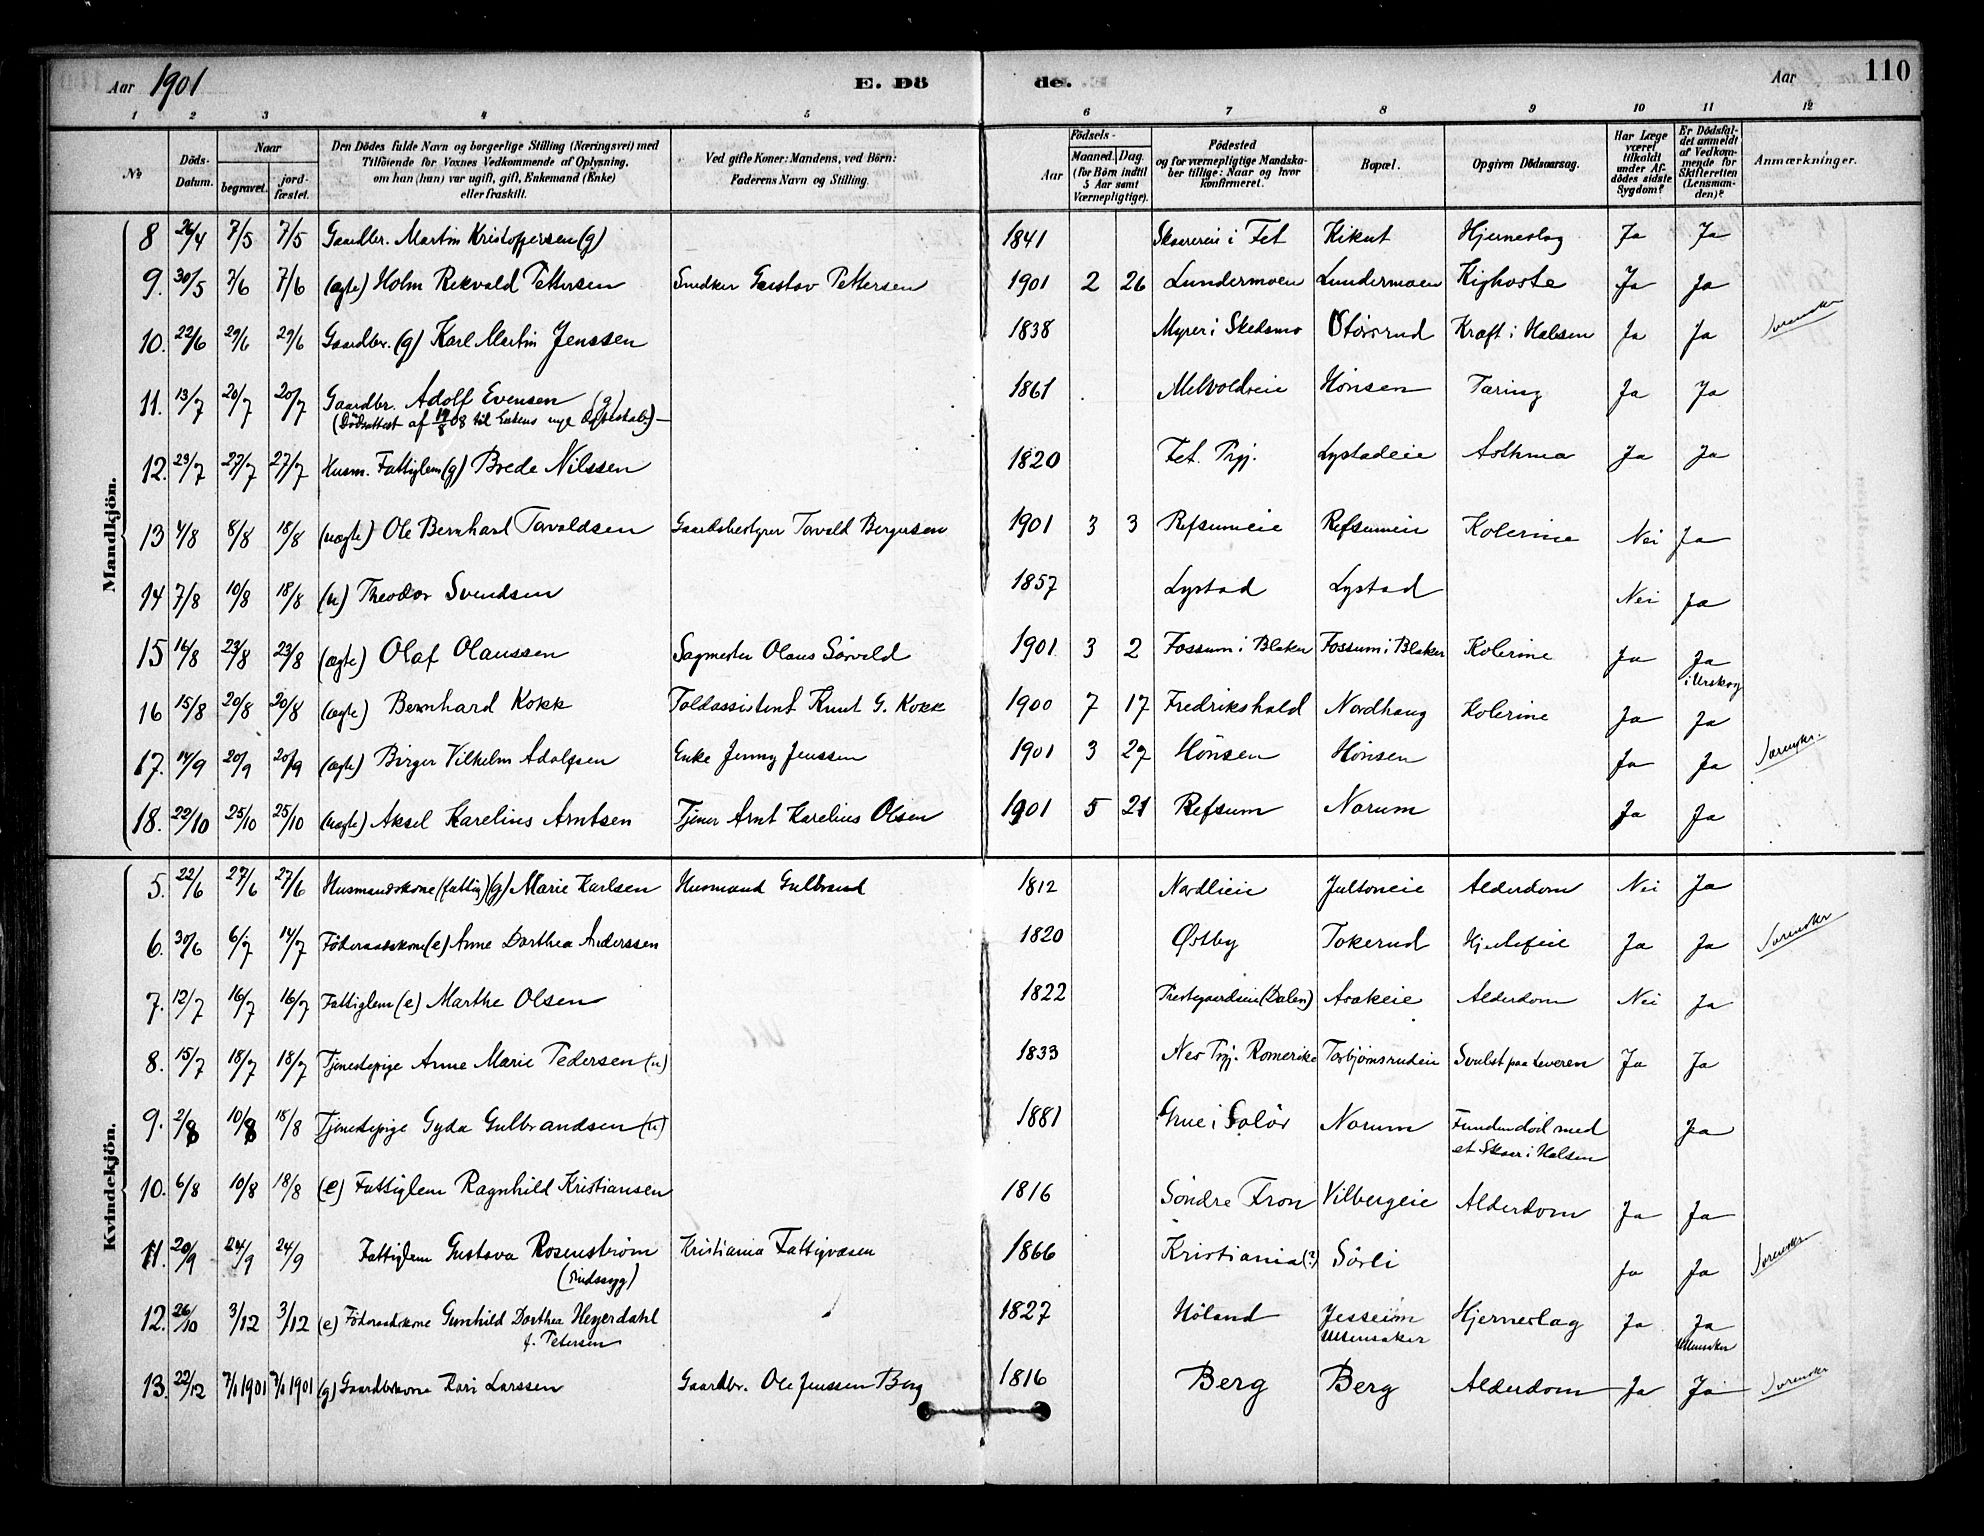 Aar 1901 E. Dö de. Aar 110
1 2 3 4 5 6 7 8 9 10 11 12
№ Döds-Datum. Naar begravet. jord-fæstet. Den Dödes fulde Navn og borgerlige Stilling (Næringsvei) med Tilföiende for Voxnes Vedkommende af Oplysning, om han (hun) var ugift, gift, Enkemand (Enke) eller fraskilt. Ved gifte Koner: Mandens, ved Börn: Faderens Navn og Stilling. Födsels- Aar Maaned. Dag. (for Börn indtil 5 Aar samt Værnepligtige). Födested og for værnepligtige Mandskaber tillige: Naar og hvor konfirmeret. Bopæl. Opgiven Dödsaarsag. Har Læge været tilkaldt under Afdödes sidste Sygdom? Er Dödsfaldet anmeldt af Vedkommende for Skifteretten (Lensmanden)? Anmærkninger.
Mandkjön.
8 26/4 7/5 7/5 Gaardbr. Martin Kristoffersen (g) 1841 i Fet Kikut Hjerneslag Ja Ja
9. 30/5 7/6 7/6 (ægte) Holm Rekvald Pettersen Snedker Gustav Pettersen 1901 2 26 Lundermoen Lundermoen Kighoste Ja Ja
10. 22/6 29/6 29/6 Gaardbr. (g) Karl Martin Jenssen 1838 Myrer i Skedsmo Störsrud Kræft i Halsen Ja Ja Sørensker
11. 13/7 20/7 20/7 Gaardbr. Adolf Evensen (g) 1861 Melvoldeie Hönsen Tæring Ja Ja
(Dödsattest af 19/8 08 til Enkens nye Ægteskab)
12. 23/7 27/7 27/7 Husm. Fattiglem (g) Brede Nilssen 1820 Fet. Prgj. Lystadeie Asthma Ja Ja
13 4/8 8/8 18/8 (uægte) Ole Bernhart Torvaldsen Gaardsbestyrer Torvald Bergersen 1901 3 3 Refsumeie Refsumeie Kolerine Nei Ja
14 7/8 10/8 18/8 (u) Theodor Svendsen 1857 Lystad Lystad Nei Ja
15 14/8 23/8 23/8 (ægte) Olaf Olaussen Sagmester Olaus Sörveld 1901 3 2 Fossum i Blaker Fossum i Blaker Kolerine Ja Ja
i Urskog
16 15/8 20/8 20/8 (ægte) Bernhard Kokk Toldassistent Knut G. Kokk 1900 7 17 Fredrikshald Nordhaug Kolerine Ja Ja
17. 14/9 20/9 20/9 (ægte) Birger Vilhelm Adolfsen Enke Jenny Jenssen 1901 3 27 Hönsen Hönsen Ja Ja Sørensker.
18. 22/10 25/10 25/10 (uægte) Aksel Karelius Arntsen Tjener Arnt Karelius Olsen 1901 5 21 Refsum Norum Ja Ja
Kvindekjön.
5. 22/6 27/6 27/6 Husmandskone (fattig) (g) Marie Karlsen Husmand Gulbrand 1812 Nordlieie Jultoneie Alderdom Nei Ja
6. 30/6 6/7 14/7 Föderaadskone (e) Anne Dorthea Anderssen 1820 Østby Tokerud Hjertefeil Ja Ja Sørensker
7. 12/7 16/7 16/7 Fattiglem (e) Marthe Olsen 1822 Prestegaardseie (Dalen) Asakeie Alderdom Nei Ja
8. 15/7 18/7 18/7 Tjenestepige Anne Marie Pedersen (u) 1833 Nes Prgj. Romerike Torbjörnsrudeie Svulst paa Leveren Ja Ja
9. 2/8 10/8 18/8 Tjenestepige Gyda Gulbrandsen (u) 1881 Grue i Solör Norum Funden död med Ja
et Skaar i Halsen
10. 6/8 10/8 18/8 (e) Fattiglem Ragnhild Kristiansen 1816 Söndre Fron Vilbergeie Alderdom Ja Ja
11. 20/9 24/9 24/9 Fattiglem Gustava Rosenström Kristiania Fattigvæsen 1866 Kristiania (?) Sörli Ja Ja Sørensker
(sindssyg)
12. 26/10 3/12 3/12 (e) Föderaadskone Gunhild Dorthea Heyerdahl 1827 Höland Jesseim Hjerneslag Ja Ja
f. Petersen Ullensaker Ullensaker
13. 22/12 7/1 1901 7/1 1901 (g) Gaardbrkone Kari Larssen Gaardbr. Ole Jenssen Berg 1816 Berg Berg Alderdom Ja Ja Sørensker